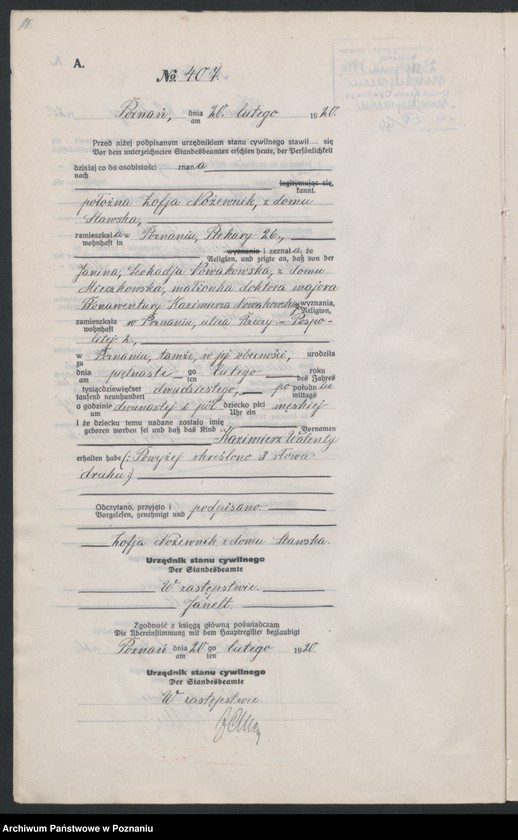 A.
No. 407.
Poznań, dnia 20. lutego 1920.
am
Przed niżej podpisanym urzędnikiem stanu cywilnego stawił się
Vor dem unterzeichneten Standesbeamten erschien heute, der Persönlichkeit
dzisiaj co do osobistości znana
nach
legitymując się,
kannt.
położna Zofja Nożewnik, z domu
Stawska,
zamieszkała w Poznaniu, Piekary 26.,
wohnhaft in
wyznania i zeznała, że
Religion, und zeigte an, daß von der
Janina, Leokadja Nowakowska, z domu
Meczkowska, małżonka doktora majora
Kazimierza Nowakowskiego wyznania,
Religion,
zamieszkała w Poznaniu, ulica Rzeczy-Pospo-
wohnhaft
litej 2.,
w Poznaniu, tamże, w jej obecności, urodziła
zu
dnia piętnastego lutego roku
am ten des Jahres
tysiącdziewięćset dwudziestego, po południu
tausend neunhundert mittags
o godzinie dwunastej i pół dziecko płci męskiej
um Uhr ein
i że dziecku temu nadane zostało imię
geboren worden sei und daß das Kind Vornamen
Kazimierz Walenty
erhalten habe (: Powyżej skreślono 3 słowa
druku.)
Odczytano, przyjęto i podpisano.
Vorgelesen, genehmigt und
Zofja Nożewnik z domu Stawska.
Urzędnik stanu cywilnego
Der Standesbeamte
W zastępstwie.
Janelt.
Zgodność z księgą główną poświadczam
Die Übereinstimmung mit dem Hauptregister beglaubigt
Poznań dnia 20 go lutego 1920.
am ten
Urzędnik stanu cywilnego
Der Standesbeamte
W zastępstwie
Archiwum Państwowe w Poznaniu